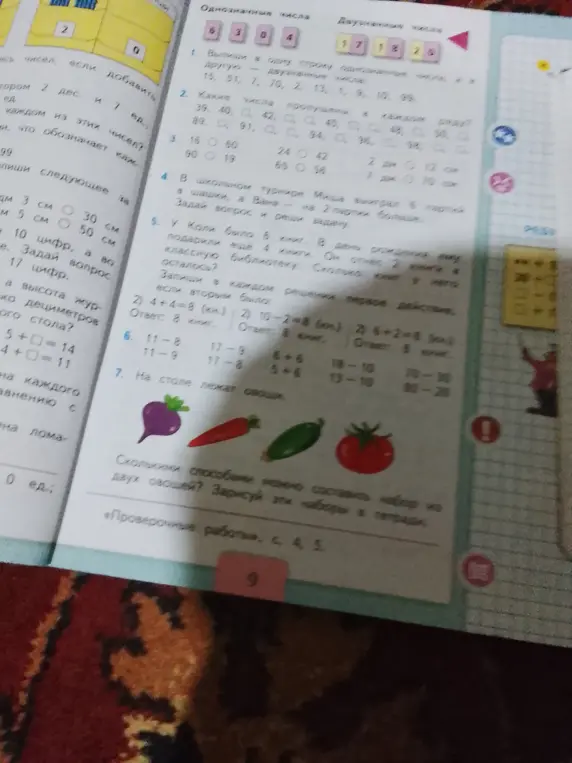 Однозначные числа
Двузначные числа
6 3 0 4
17 18 25
1. Выпиши в одну строку однозначные числа, а в
другую — двузначные числа:
15, 51, 7, 70, 2, 13, 1, 9, 10, 99.
2. Какие числа пропущены в каждом ряду?
39, 40, □, 42, □, □, 45, □, □, 48, □, 50, □
89, □, 91, □, □, 94, □, 96, □, 98, □
3. 16 ○ 60
24 ○ 42
2 дм ○ 12 см
90 ○ 19
65 ○ 56
7 дм ○ 70 см
4. В школьном турнире Миша выиграл 6 партий
в шашки, а Ваня — на 2 партии больше.
Задай вопрос и реши задачу.
5. У Коли было 6 книг. В день рождения ему
подарили ещё 4 книги. Он отнёс 2 книги в
классную библиотеку. Сколько книг у него
осталось?
Запиши в каждом решении первое действие,
если вторым было:
2) 4+4=8 (кн.) 2) 10-2=8 (кн.) 2) 6+2=8 (кн.)
Ответ: 8 книг. Ответ: 8 книг. Ответ: 8 книг.
6. 11-8 17-9 6+6 18-10
11-9 17-8 5+6 13-10 90-20
7. На столе лежат овощи.
Сколькими способами можно составить набор из
двух овощей? Зарисуй эти наборы в тетради.
«Проверочные работы», с. 4, 5.
9
2
0
если добавить
2 дес. и 7 ед.,
ед.
каждом из этих чисел?
что обозначает
99
следующее
3 см ○ 30 см
5 см ○ 50 см
10 цифр, а во
Задай вопрос
17 цифр.
а высота жур-
дециметров
стола?
5+□=14
4+□=11
на каждого
на лома-
0 ед.;